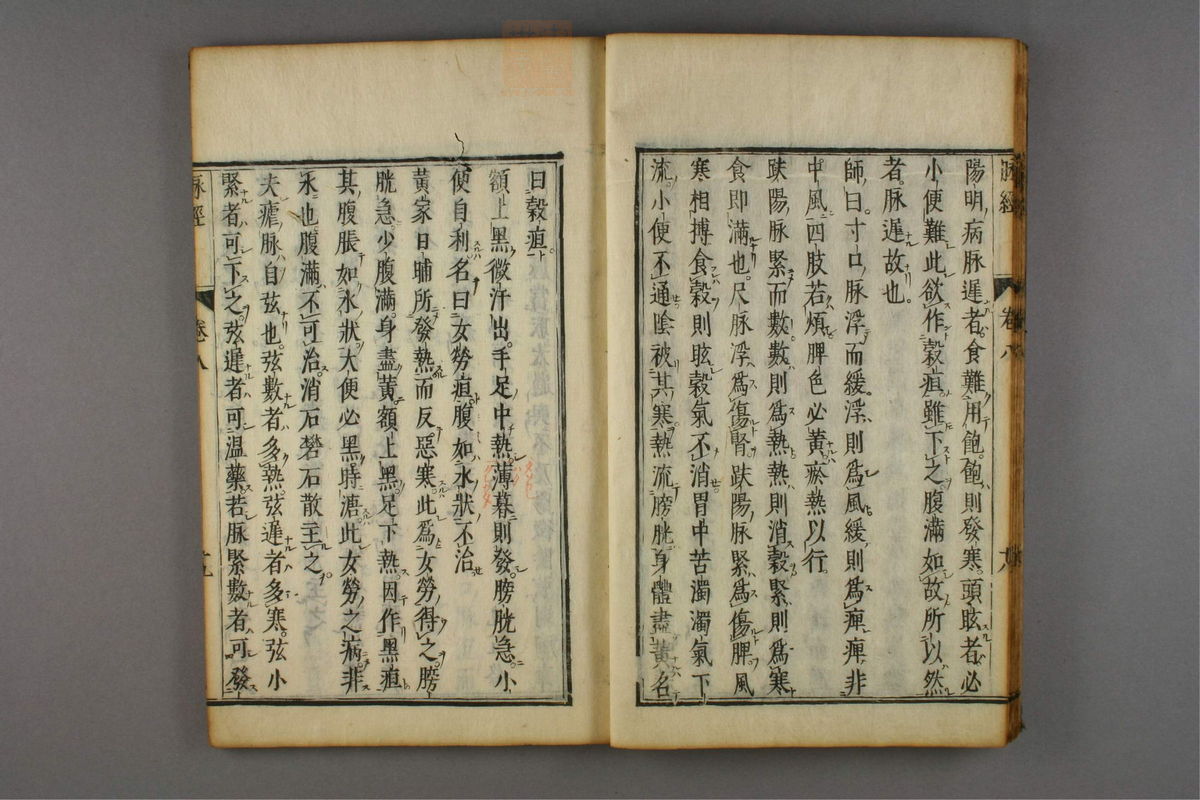 陽明病脉遲者食難用飽飽則發寒頭眩者必
小便難此欲作穀疸雖下之腹滿如故所以然
者脉遲故也
師曰寸口脉浮而緩浮則爲風緩則爲痺痺非
中風四肢若煩脾色必黃瘀熱以行
趺陽脉緊而數數則爲熱熱則消穀緊則爲寒
食即滿也尺脉浮爲傷腎趺陽脉緊爲傷脾風
寒相搏食穀則眩穀氣不消胃中苦濁濁氣下
流小便不通陰被其寒熱流膀胱身體盡黃名
曰穀疸
額上黑微汗出手足中熱薄暮則發膀胱急小
便自利名曰女勞疸腹如水狀不治
黃家日晡所發熱而反惡寒此爲女勞得之膀
胱急少腹滿身盡黃額上黑足下熱因作黑疸
其腹脹如水狀大便必黑時溏此女勞之病非
水也腹滿不可治消石礬石散主之
夫瘧脉自弦也弦數者多熱弦遲者多寒弦小
緊者可下之弦遲者可溫藥若脉緊數者可發
脉經
卷八